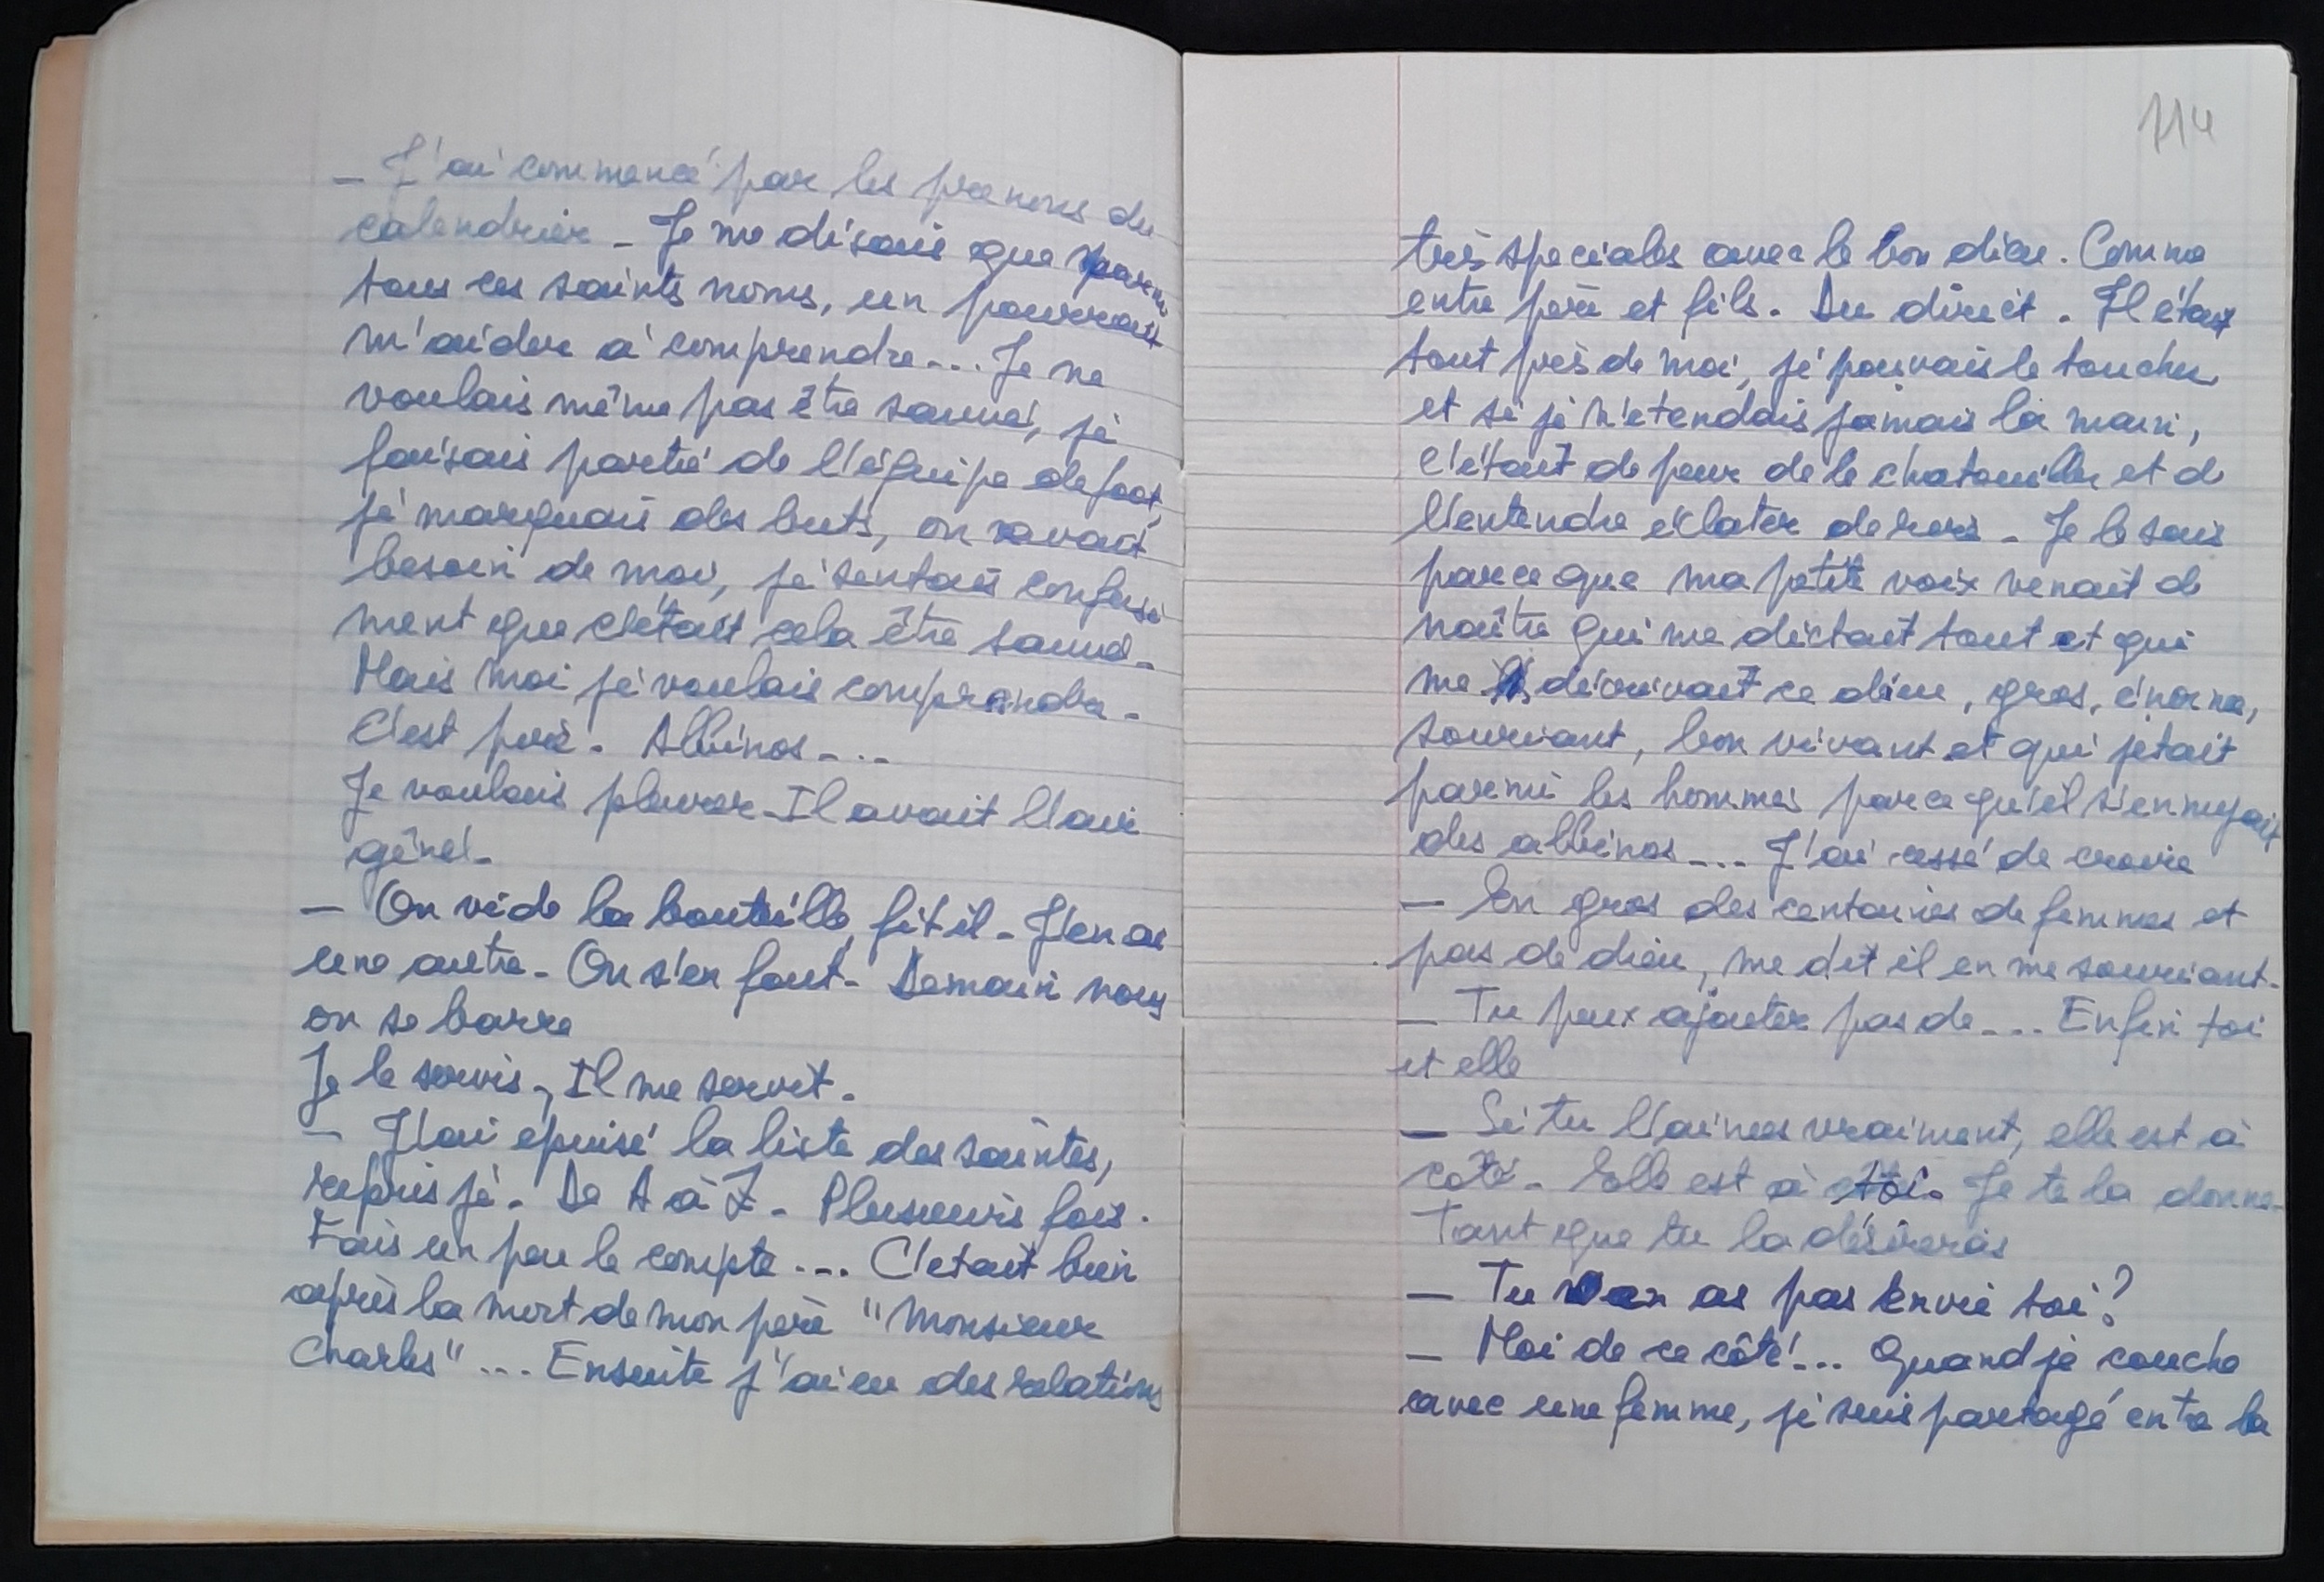 – J'ai commencé par les prenoms du
calendrier – Je me disais que parmi
tous ces saints noms, un pourrait
m'aider à comprendre... Je ne
voulais même pas être sauvé, je
faisais partie de l'équipe de foot,
je marquais des buts, on avait
besoin de moi, je sentais confusé
ment que c'était cela être sauvé –
Mais moi je voulais comprendre –
C'est pire. Albinos...
Je voulais pleurer – Il avait l'air
gêné –
– On vide la bouteille, fit il – J'en ai
une autre – On s'en fout – Demain nous
on se barre
Je le servis, Il me servit.
– J'ai épuisé la liste des saintes,
repris je – De A à Z – Plusieurs fois.
Fais un peu le compte... C'etait bien
après la mort de mon père "Monsieur
Charles"... Ensuite j'ai eu des relations
114
très speciales avec le bon dieu. Comme
entre père et fils. Du direct. Il était
tout près de moi, je pouvais le toucher
et si je n'etendais jamais la main,
c'était de peur de le chatouiller et de
l'entendre éclater de rire – Je le sais
parce que ma petite voix venait de
naître qui me dictait tout et qui
me décrivait ce dieu, gros, énorme,
souriant, bon vivant et qui jetait
parmi les hommes parce qu'il s'ennuyait
des albinos... J'ai cessé de croire
– En gros des centaines de femmes et
pas de dieu, me dit il en me souriant –
– Tu peux ajouter pas de... Enfin toi
et elle
– Si tu l'aimes vraiment, elle est à
côté – Elle est à toi. Je te la donne –
Tant que tu la désireras
– Tu en as pas envie toi?
– Moi de ce côté!... Quand je couche
avec une femme, je suis partagé entre la